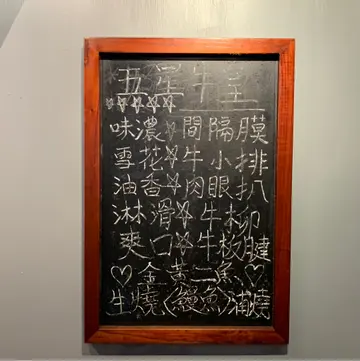 五星牛王
☆☆☆☆☆
味濃☆間隔膜
雪花☆牛小排
油香☆肉眼扒
淋滑☆牛柳
爽口☆牛板腱
♡金黃二魚♡
生燒鰻魚蒲燒